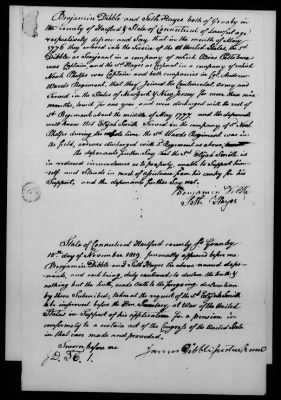 Benjamin Dibble and Seth Hayes both of Granby in
the County of Hartford & State of Connecticut of lawful age
respectively depose and Say, that in the month of May
1776 they entered into the Service of the United States, the sd
Dibble as Sergeant in a company of which
was Captain, and the sd Hayes as Corporal in a company of which
Noah Phelps was Captain and both companies in Col. Andrew
Wards Regiment, that they Joined the Continental Army and
Served in the States of New York & New Jersey for more than nine
months, listed for one year and were discharged with the rest of
sd Regiment about the middle of May 1777. and the deponents
well know that Elijah Smith Served in the company of sd Noah
Phelps during the whole time the sd Wards Regiment was in
the field, and was discharged with sd Regiment as above,
the deponents further Say that the sd Elijah Smith is
in reduced circumstances as to property, unable to Support him-
self and Stands in need of assistance from his country for his
Support, and the deponents further Say not.
Benjamin Dible
Seth Hayes
State of Connecticut Hartford County ss Granby
15th day of November 1819. personally appeared
Benjamin Dibble and Seth Hayes the above named depo-
nents, and each being duly cautioned to declare the truth &
nothing but the truth, made Oath to the foregoing declaration
by them Subscribed; taken at the request of the sd Elijah Smith
to be improved before the Hon. Secretary at War of the United
States in Support of his application for a pension in
conformity to a certain act of the Congress of the United States
in that case made and provided.
Sworn before me
James Dibble Justice Peace